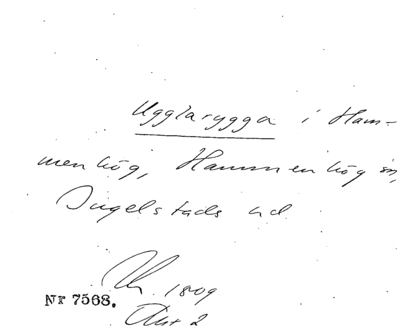 Ugglarygga i Ham-
menhög, Hammenhög sn,
Ingelstads hd
1809
Nr 7568.
Akt 2